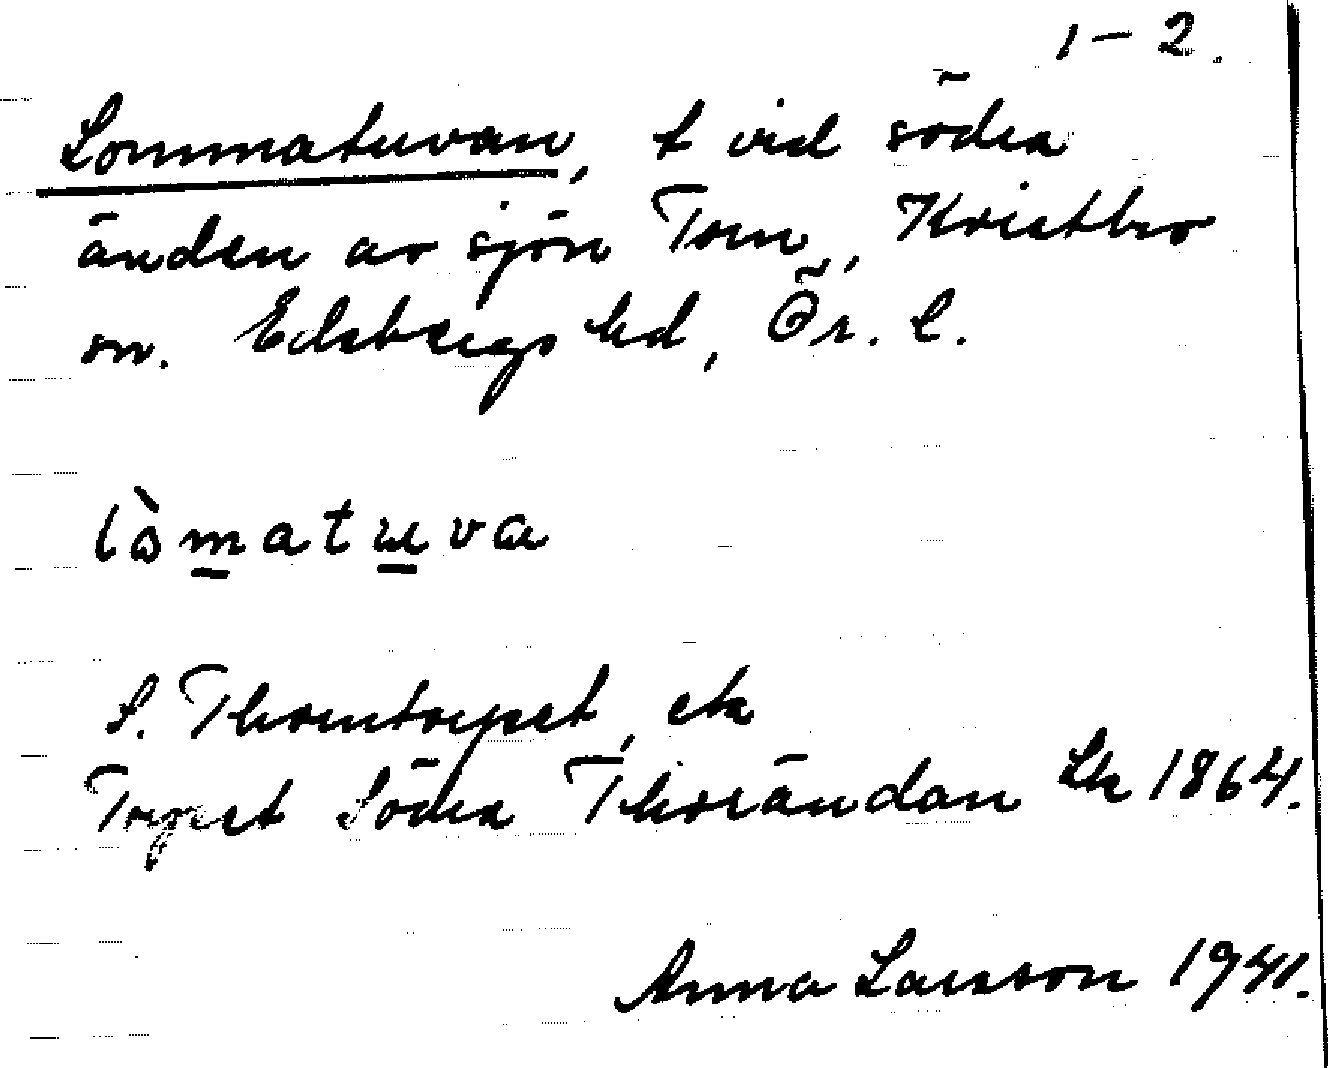 1-2.
Lommatuvan, t vid södra
änden av sjön Torn, Kvistbro
sn. Edsbergs hd, Ör. l.
lòmatuva
S. Thorntorpet, ek
Torpet Södra Thorändan Lk 1864.
Anna Larsson 1941.